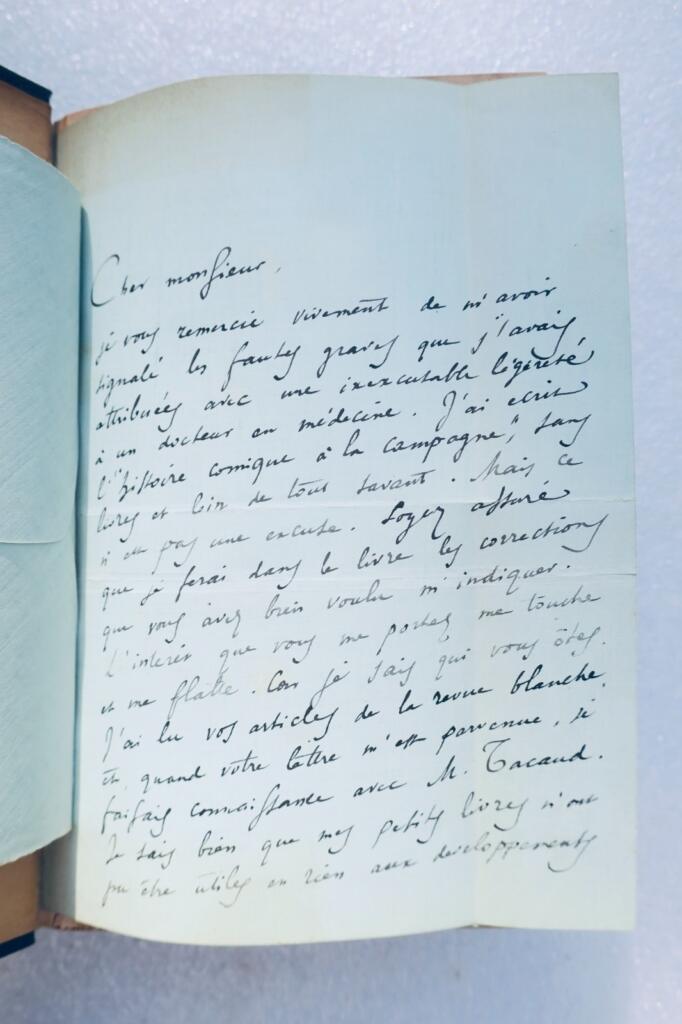 Cher monsieur,
je vous remercie vivement de m'avoir
signalé les fautes graves que j'avais
attribuées avec une inexcusable légèreté
à un docteur en médecine. J'ai écrit
l'"histoire comique à la campagne," sans
livres et loin de tout savant. Mais ce
n'est pas une excuse. Soyez assuré
que je ferai dans le livre les corrections
que vous avez bien voulu m'indiquer.
L'intérêt que vous me portez me touche
et me flatte. Car je sais qui vous êtes.
J'ai lu vos articles de la revue blanche
et, quand votre lettre m'est parvenue, je
faisais connaissance avec M. Tacaud.
Je sais bien que mes petits livres n'ont
pu être utiles en rien aux developpements